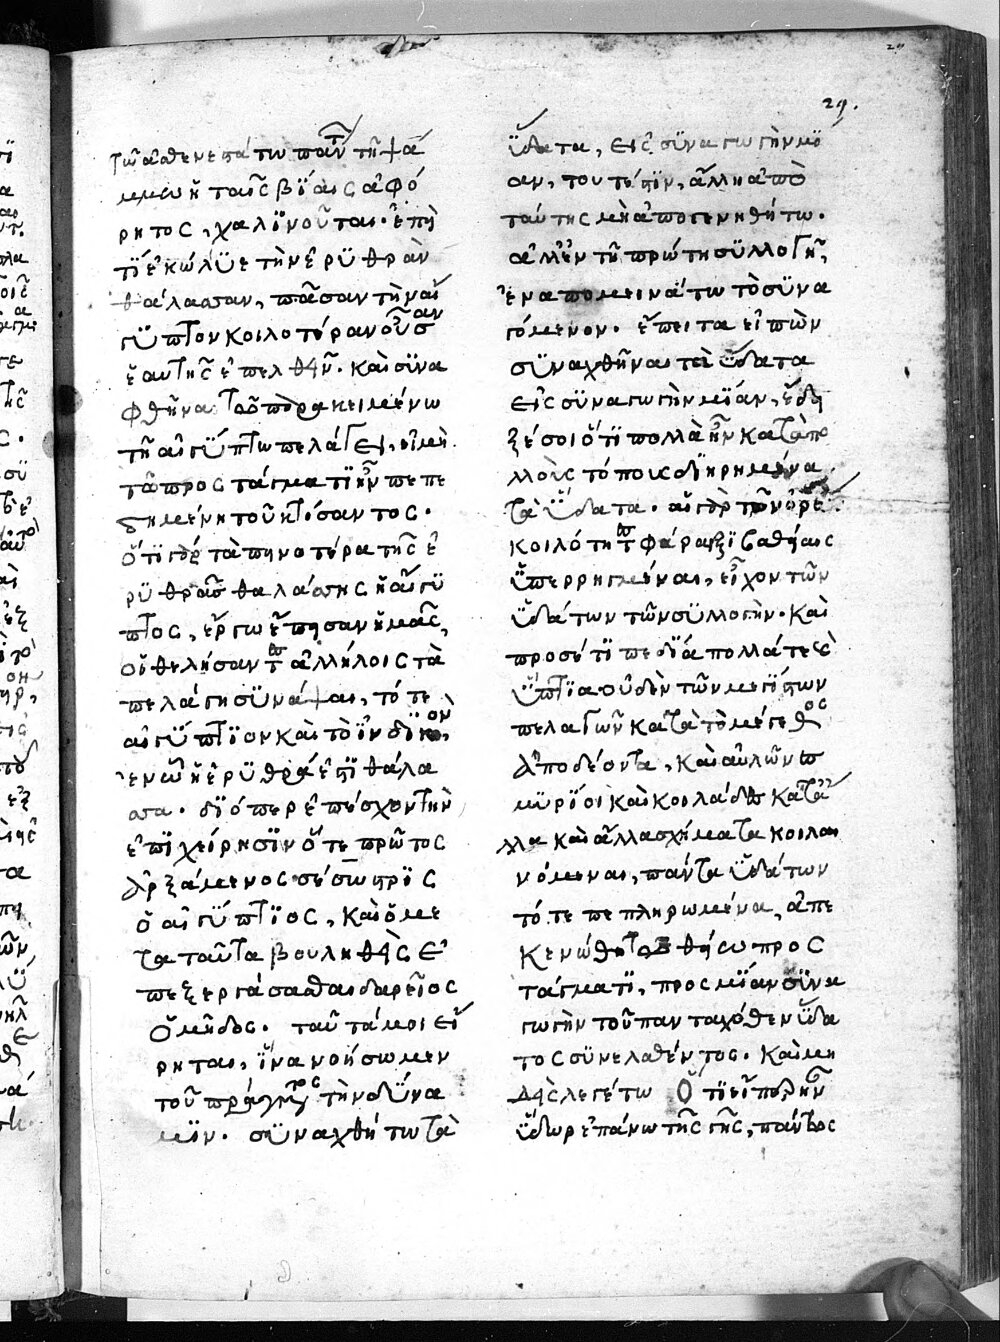 29.
τῶ ἀσθενεστάτω πάντων τῆ ψά
μμω ἡ ταῖς βίαις ἀφό
ρητος, χαλινοῦται· ἐπεὶ
τί ἐκώλυε τὴν ἐρυθρὰν
θάλασσαν, πᾶσαν τὴν αἴ
γυπτον κοιλοτέραν οὖσαν
ἑαυτῆς ἐπελθεῖν· καὶ συνα
φθῆναι τῶ παρακειμένω
τῆ αἰγύπτω πελάγει, εἰ μὴ
τῶ προστάγματι ἦν πεπε
δημένη τοῦ κτίσαντος·
ὅτι γὰρ ταπεινοτέρα τῆς ἐ
ρυθρᾶς θαλάσσης ἡ αἴγυ
πτος, ἔργω ἔπεισαν ἡμᾶς,
οἱ θελήσαντες ἀλλήλοις τὰ
πελάγη συνάψαι, τό τε
αἰγύπτιον καὶ τὸ ἰνδικὸν,
ἐν ὧ ἡ ἐρυθρά ἐστι θάλα
σσα· διόπερ ἐπέσχον τὴν
ἐπιχείρησιν ὅ τε πρῶτος
ἀρξάμενος σέσωστρις
ὁ αἰγύπτιος, καὶ ὁ με
τὰ ταῦτα βουληθεὶς ἐ
πεξεργάσασθαι δαρεῖος
ὁ μῆδος· ταῦτά μοι εἴ
ρηται, ἵνα νοήσωμεν
τοῦ προστάγματος τὴν δύνα
μιν· συναχθήτω τὰ
ὕδατα, εἰς συναγωγὴν μί
αν, τουτέστιν, ἄλλη ἀπὸ
ταύτης μὴ ἀπογεννηθήτω·
ἀλλ' ἐν τῆ πρώτη συλλογῆ,
ἐναπομεινάτω τὸ συνα
γόμενον· ἔπειτα εἰπὼν
συναχθῆναι τὰ ὕδατα
εἰς συναγωγὴν μίαν, ἔδει
ξέ σοι ὅτι πολλὰ ἦν κατὰ πο
λλοὺς τόποις διηρημένα
τὰ ὕδατα· αἵ τε γὰρ τῶν ὀρέων
κοιλότητες φάραγξι βαθείαις
ὑπερρηγμέναι, εἶχον τῶν
ὑδάτων τῶν συλλογήν· καὶ
προσέτι πεδία πολλά τε καὶ
ὕπτια οὐδὲν τῶν μεγίστων
πελαγῶν κατὰ τὸ μέγεθος
ἀποδέοντα, καὶ αὐλῶνες
μυρίοι καὶ κοιλάδες κατ' ἄ
λλα καὶ ἄλλα σχήματα κοιλαι
νόμεναι, πάντα ὑδάτων
τότε πεπληρωμένα, ἀπε
κενώθη τῶ θείω προς
τάγματι, πρὸς μίαν συνα
γωγὴν τοῦ πανταχόθεν ὕδα
τος συνελαθέντος· καὶ μη
δεὶς λεγέτω ὅτι εἴπερ ἦν
ὕδωρ ἐπάνω τῆς γῆς, πάντως